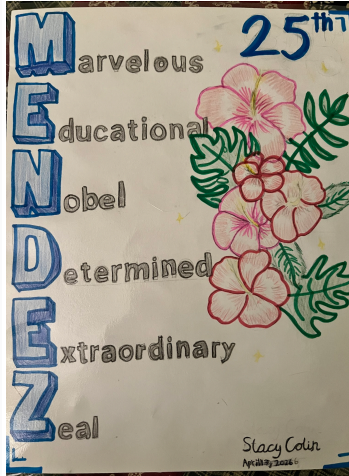 25th
Marvelous
Educational
Nobel
Determined
Extraordinary
Zeal
Stacy Colin